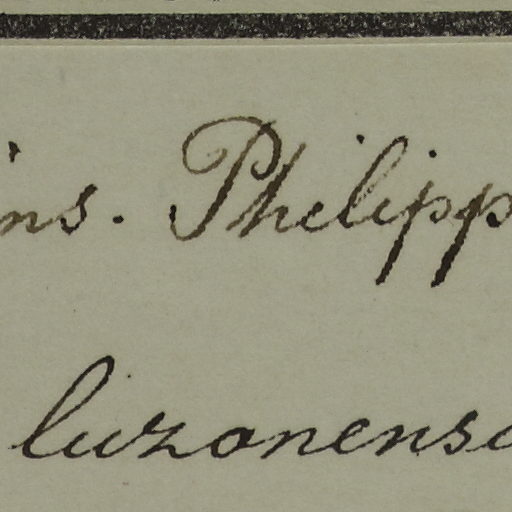 ins. Philipp
luzonens